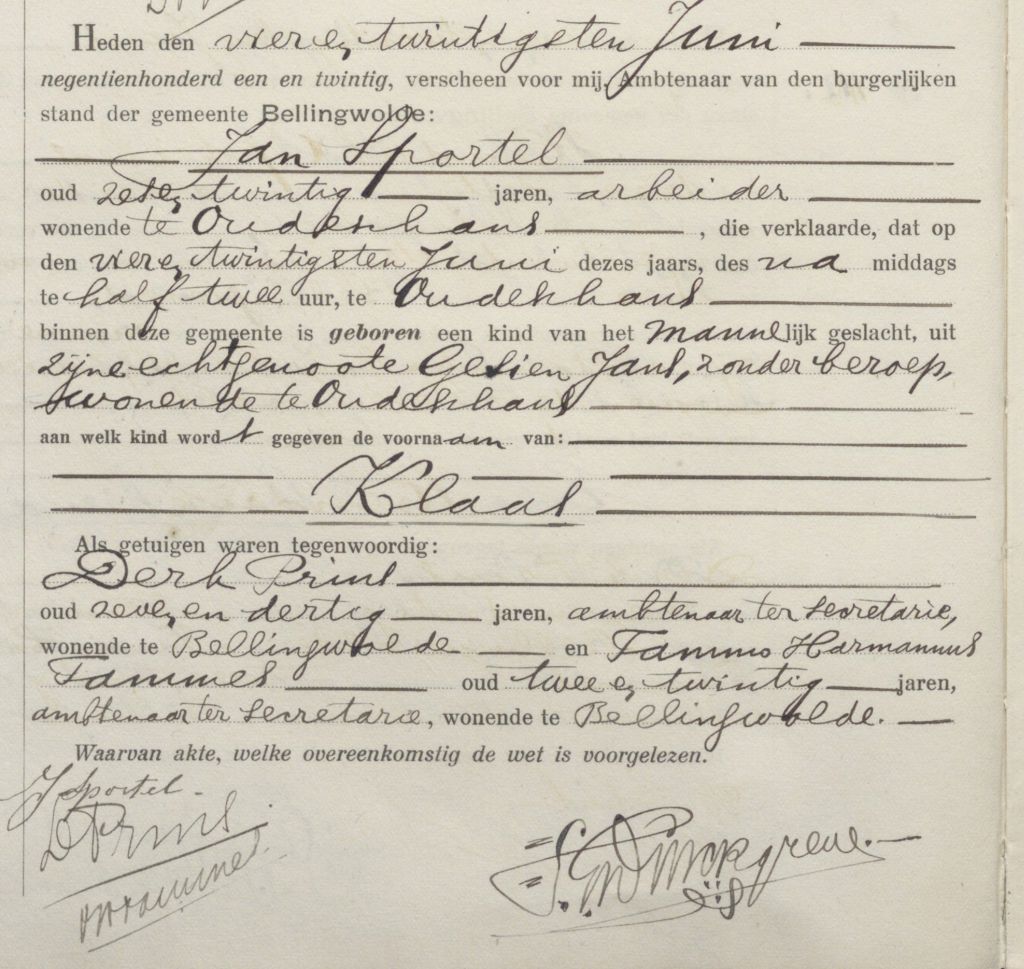 Heden den vier en twintigsten Juni
negentienhonderd een en twintig, verscheen voor mij, Ambtenaar van den burgerlijken
stand der gemeente Bellingwolde:
Jan Sportel
oud zes en twintig jaren, arbeider
wonende te Oudeschans, die verklaarde, dat op
den vier en twintigsten Juni dezes jaars, des na middags
te half twee uur, te Oudeschans
binnen deze gemeente is geboren een kind van het mannelijk geslacht, uit
zijne echtgenoote Gesien Jans, zonder beroep,
wonende te Oudeschans
aan welk kind wordt gegeven de voornaam van:
Klaas
Als getuigen waren tegenwoordig:
Derk Prins
oud zeven en dertig jaren, ambtenaar ter secretarie,
wonende te Bellingwolde en Tammo Harmannus
Tammes oud twee en twintig jaren,
ambtenaar ter secretarie, wonende te Bellingwolde.
Waarvan akte, welke overeenkomstig de wet is voorgelezen.
J Sportel
D Prins